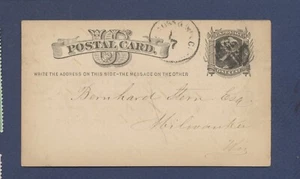 POSTAL CARD.
WRITE THE ADDRESS ON THIS SIDE - THE MESSAGE ON THE OTHER
Bernhard Stern Esq.
Milwaukee
Wis.